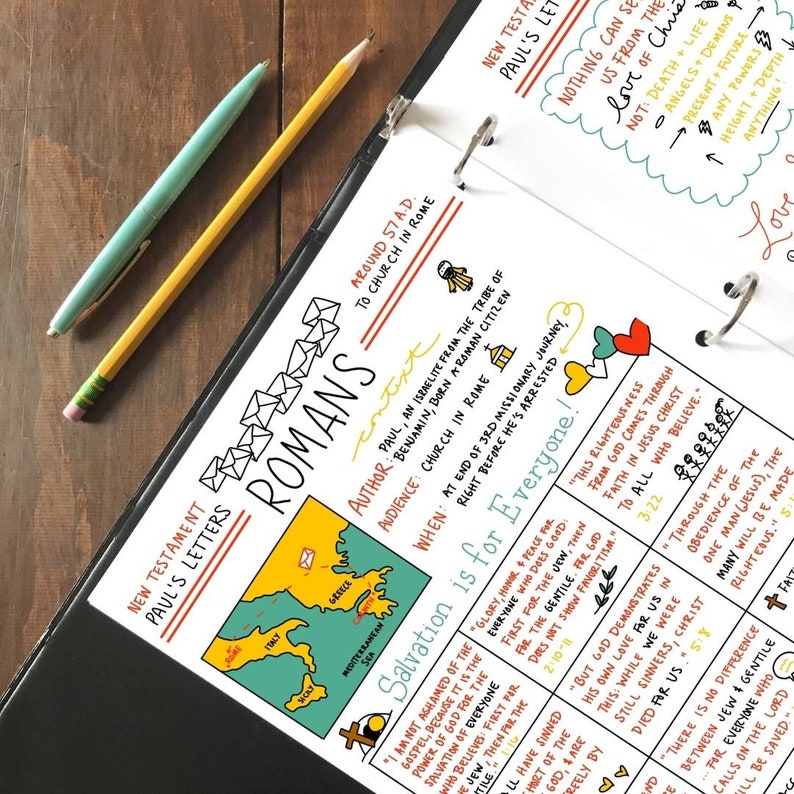 NEW TESTAMENT
PAUL'S LETTERS
ROMANS
AROUND 57 A.D.
TO CHURCH IN ROME
context
AUTHOR: PAUL, AN ISRAELITE FROM THE TRIBE OF
BENJAMIN, BORN A ROMAN CITIZEN
AUDIENCE: CHURCH IN ROME
WHEN: AT END OF 3RD MISSIONARY JOURNEY,
RIGHT BEFORE HE'S ARRESTED
ROME
ITALY
SICILY
GREECE
CORINTH
MEDITERRANEAN
SEA
Salvation is for Everyone!
"I AM NOT ASHAMED OF THE
GOSPEL, BECAUSE IT IS THE
POWER OF GOD FOR THE
SALVATION OF EVERYONE
WHO BELIEVES: FIRST FOR
THE JEW, THEN FOR THE
GENTILE." 1:16
"GLORY, HONOR & PEACE FOR
EVERYONE WHO DOES GOOD:
FIRST FOR THE JEW, THEN
FOR THE GENTILE. FOR GOD
DOES NOT SHOW FAVORITISM."
2:10-11
"THIS RIGHTEOUSNESS
FROM GOD COMES THROUGH
FAITH IN JESUS CHRIST
TO ALL WHO BELIEVE."
3:22
HAVE SINNED
SHORT OF THE
GOD, & ARE
FREELY BY
"BUT GOD DEMONSTRATES
HIS OWN LOVE FOR US IN
THIS: WHILE WE WERE
STILL SINNERS, CHRIST
DIED FOR US." 5:8
"THROUGH THE
OBEDIENCE OF THE
ONE MAN (JESUS), THE
MANY WILL BE MADE
RIGHTEOUS."
"THERE IS NO DIFFERENCE
BETWEEN JEW & GENTILE
... FOR EVERYONE WHO
CALLS ON THE LORD
WILL BE SAVED."
FAITH
NEW TESTAMENT
PAUL'S LETTERS
NOTHING CAN
US FROM THE
love OF Christ
NOT: DEATH + LIFE
ANGELS + DEMONS
PRESENT + FUTURE
ANY POWERS
HEIGHT + DEPTH
ANYTHING!
Love